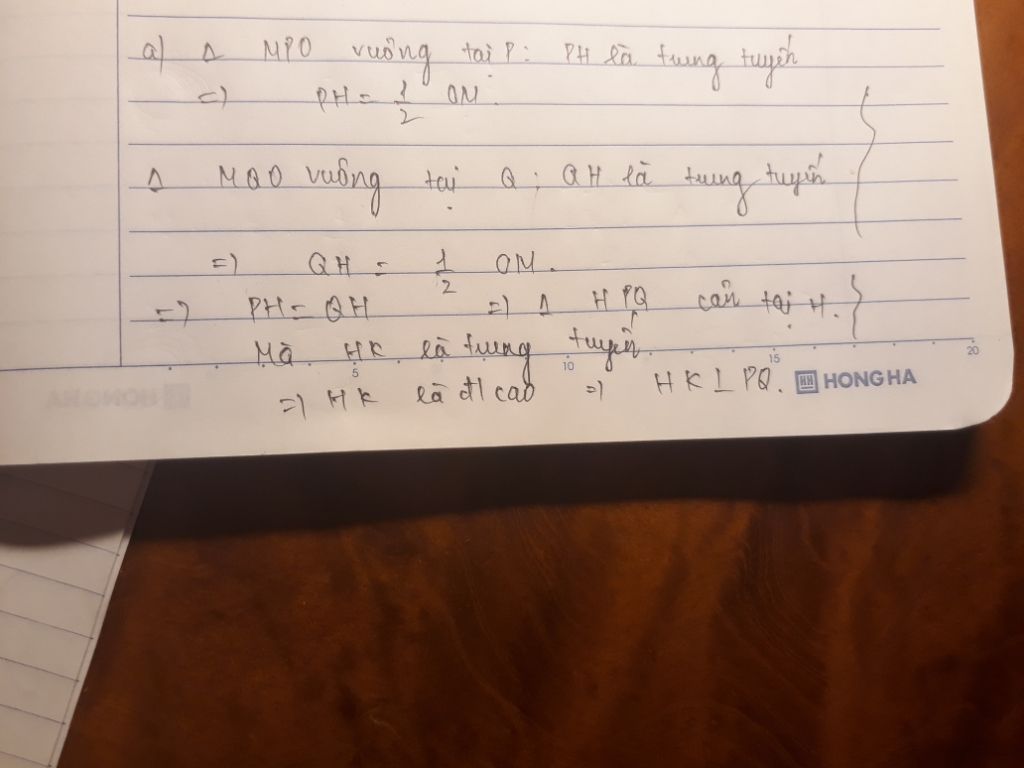 a) Δ MPO vuông tại P: PH là trung tuyến
=) PH = 1/2 OM.
Δ MQO vuông tại Q; QH là trung tuyến
=) QH = 1/2 OM.
=) PH = QH =) Δ HPQ cân tại H.
Mà HK là trung tuyến
5 10 15 20
=) HK là đ/cao =) HK ⊥ PQ. HH HONG HA